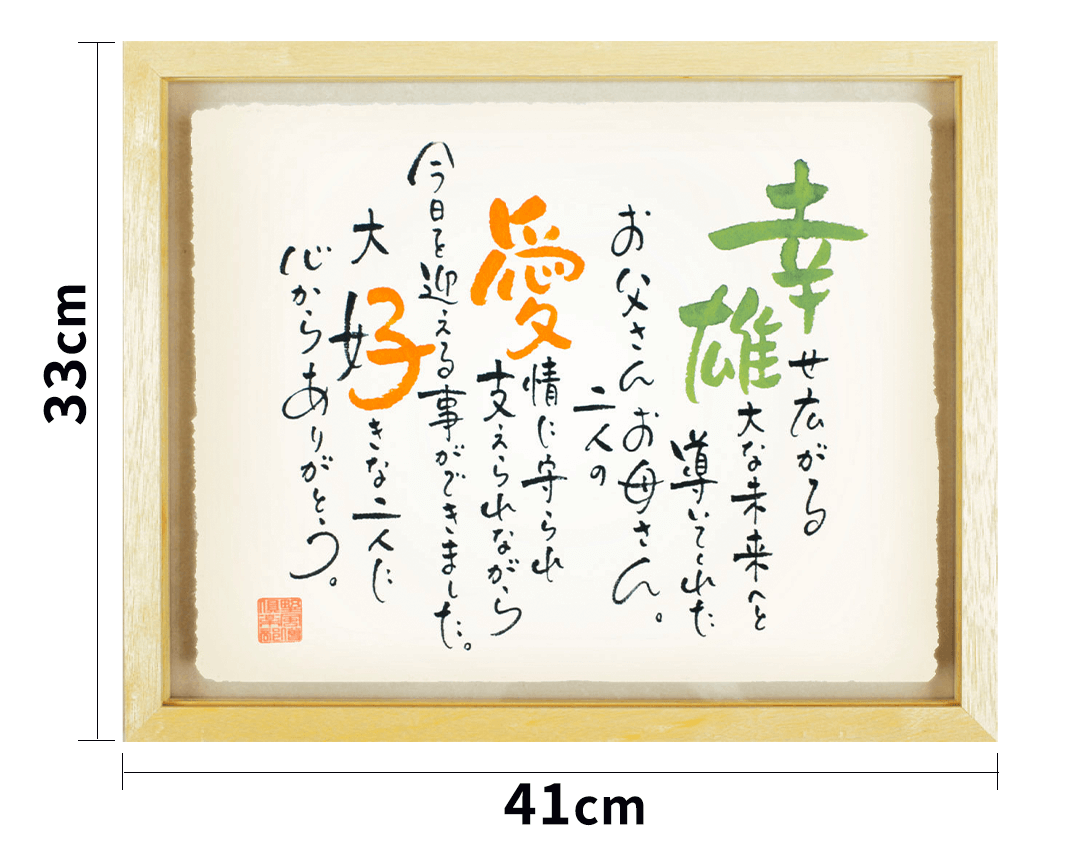 幸せ広がる
雄大な未来へと
導いてくれた
お父さんお母さん。
二人の
愛情に守られ
支えられながら
今日を迎える事ができました。
大好きな二人に
心からありがとう。
33cm
41cm